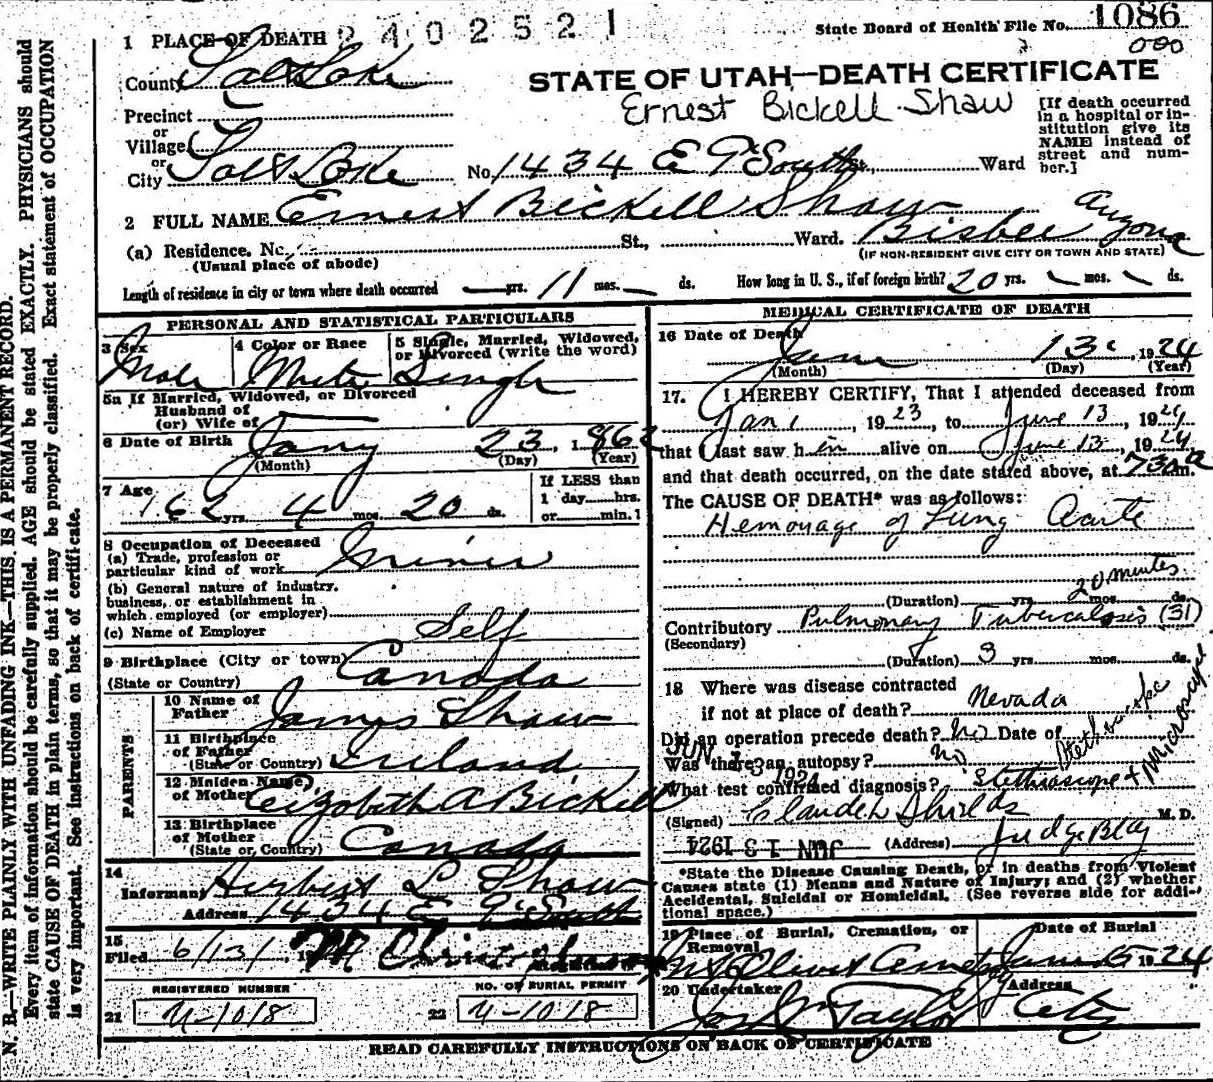 2402521
State Board of Health File No. 1086
000
1 PLACE OF DEATH
County Salt Lake
STATE OF UTAH—DEATH CERTIFICATE
Ernest Bickell Shaw
Precinct
or
Village
or
City Salt Lake No. 1434 E 9th South Ward
[If death occurred
in a hospital or in-
stitution give its
NAME instead of
street and num-
ber.]
2 FULL NAME Ernest Bickell Shaw
(a) Residence. No. St., Ward. Bisbee Arizona
(Usual place of abode)
(IF NON-RESIDENT GIVE CITY OR TOWN AND STATE)
Length of residence in city or town where death occurred — yrs. 11 mos. — ds. How long in U. S., if of foreign birth? 20 yrs. mos. ds.
PERSONAL AND STATISTICAL PARTICULARS
3 Sex Male
4 Color or Race White
5 Single, Married, Widowed,
or Divorced (write the word)
Single
5a If Married, Widowed, or Divorced
Husband of
(or) Wife of
6 Date of Birth Jany 23, 1862
(Month) (Day) (Year)
7 Age 62 yrs. 4 mos. 20 ds.
If LESS than
1 day hrs.
or min.?
8 Occupation of Deceased
(a) Trade, profession or
particular kind of work Miner
(b) General nature of industry,
business, or establishment in
which employed (or employer)
(c) Name of Employer Self
9 Birthplace (City or town)
(State or Country) Canada
PARENTS
10 Name of
Father James Shaw
11 Birthplace
of Father
(State or Country) Ireland
12 Maiden Name
of Mother Elizabeth A Bickell
13 Birthplace
of Mother
(State or Country) Canada
14
Informant Herbert L Shaw
Address 1434 E 9th South
15
Filed 6/13/, 19
REGISTERED NUMBER
21 M-1018
NO. OF BURIAL PERMIT
22 M-1018
MEDICAL CERTIFICATE OF DEATH
16 Date of Death June 13, 1924
(Month) (Day) (Year)
17. I HEREBY CERTIFY, That I attended deceased from
Jan 1, 1923, to June 13, 1924
that I last saw him alive on June 13, 1924
and that death occurred, on the date stated above, at 730 a m.
The CAUSE OF DEATH* was as follows:
Hemorrage of Lung Acute
20 minutes
(Duration) yrs. mos. ds.
Contributory Pulmonary Tuberculosis (31)
(Secondary)
(Duration) 3 yrs. mos. ds.
18 Where was disease contracted
if not at place of death? Nevada
Did an operation precede death? No Date of
Was there an autopsy? No
JUN 13 1924
What test confirmed diagnosis? Stethoscope + Microscope
(Signed) Claude L Shields M. D.
JUN 13 1924 (Address) Judge Bldg
*State the Disease Causing Death, or in deaths from Violent
Causes state (1) Means and Nature of Injury; and (2) whether
Accidental, Suicidal or Homicidal. (See reverse side for addi-
tional space.)
19 Place of Burial, Cremation, or
Removal
Mt Olivet Cemetery
Date of Burial
June 1924
20 Undertaker
Taylor
Address
City
READ CAREFULLY INSTRUCTIONS ON BACK OF CERTIFICATE
N. B.—WRITE PLAINLY WITH UNFADING INK—THIS IS A PERMANENT RECORD.
Every item of information should be carefully supplied. AGE should be stated EXACTLY. PHYSICIANS should
state CAUSE OF DEATH in plain terms, so that it may be properly classified. Exact statement of OCCUPATION
is very important. See instructions on back of certificate.